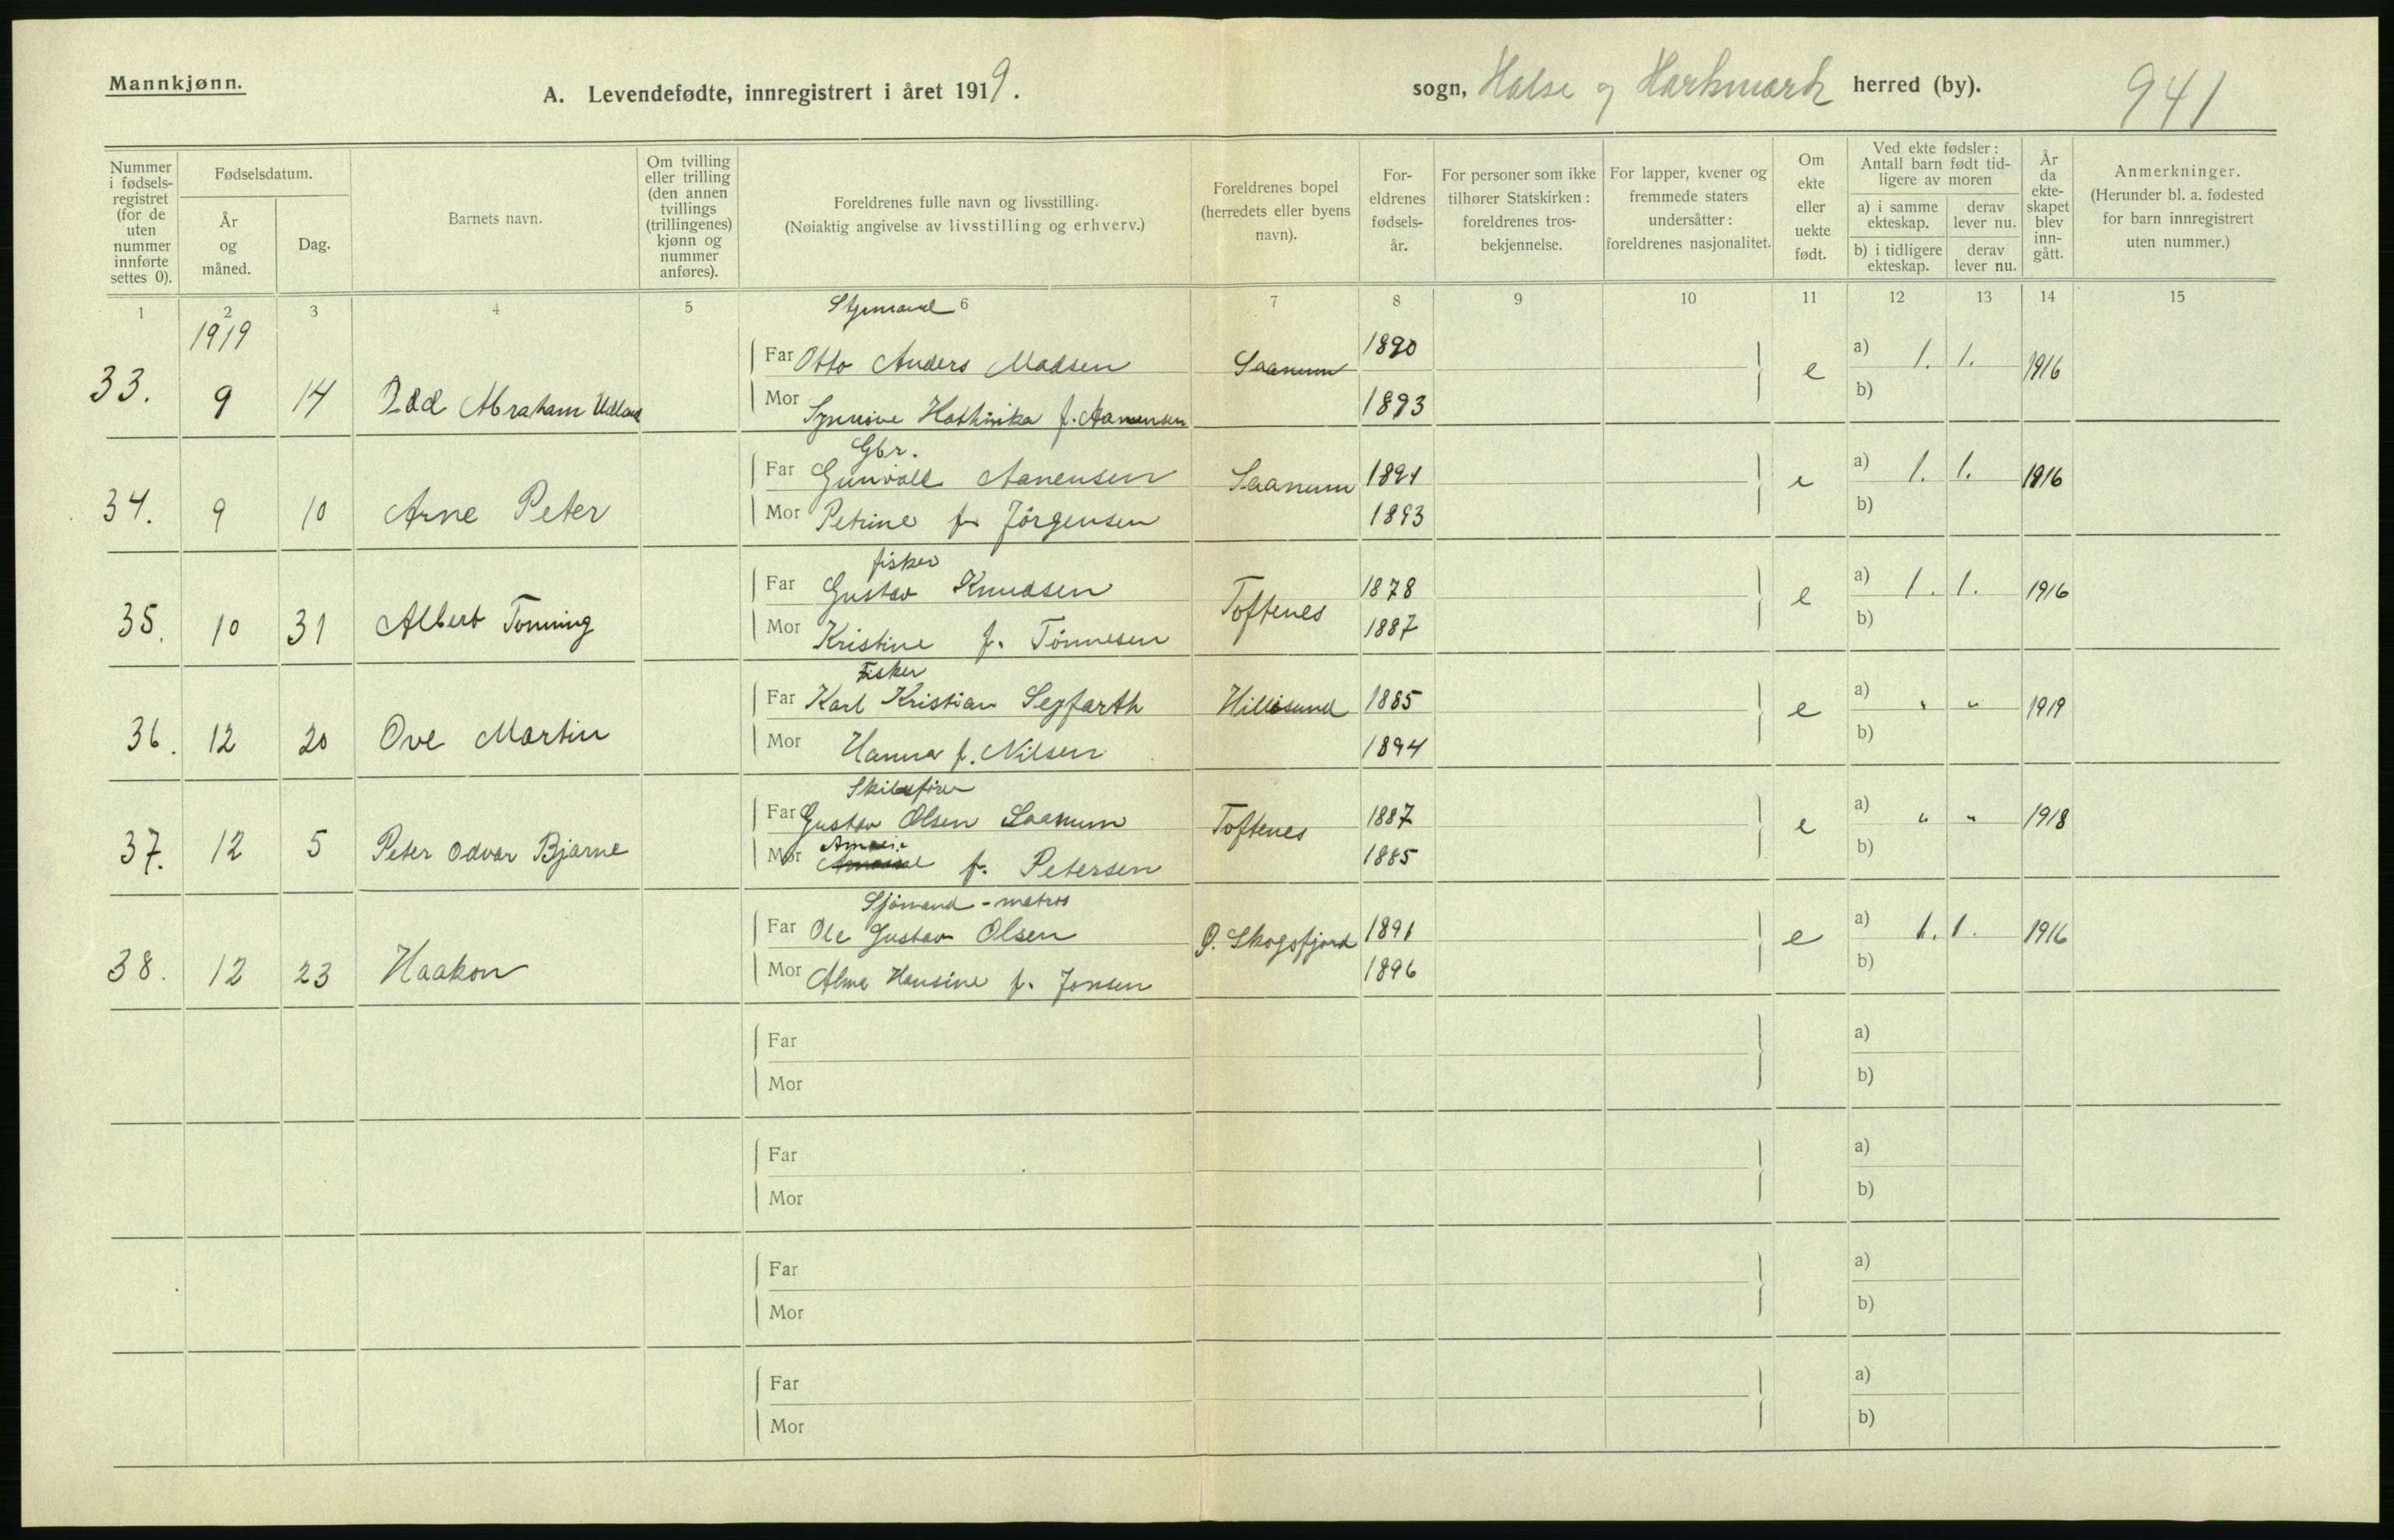 Mannkjønn.
A. Levendefødte, innregistrert i året 1919.
sogn, Halse og Harkmark herred (by).
941
Nummer i fødselsregistret (for de uten nummer innførte settes 0).
Fødselsdatum.
År og måned.
Dag.
Barnets navn.
Om tvilling eller trilling (den annen tvillings (trillingenes) kjønn og nummer anføres).
Foreldrenes fulle navn og livsstilling.
(Nøiaktig angivelse av livsstilling og erhverv.)
Foreldrenes bopel (herredets eller byens navn).
Foreldrenes fødselsår.
For personer som ikke tilhører Statskirken: foreldrenes trosbekjennelse.
For lapper, kvener og fremmede staters undersåtter: foreldrenes nasjonalitet.
Om ekte eller uekte født.
Ved ekte fødsler: Antall barn født tidligere av moren
a) i samme ekteskap. derav lever nu.
b) i tidligere ekteskap. derav lever nu.
År da ekteskapet blev inngått.
Anmerkninger.
(Herunder bl. a. fødested for barn innregistrert uten nummer.)
1 2 3 4 5 6 7 8 9 10 11 12 13 14 15
1919
Styrmand
33. 9 14 Odd Abraham Udland
Far Otto Anders Madsen Saanum 1890 e a) 1. 1. 1916
Mor f. Aanensen 1893 b)
Gbr.
34. 9 10 Arne Peter
Far Gunvall Aanensen Saanum 1891 e a) 1. 1. 1916
Mor Petrine f. Jörgensen 1893 b)
fisker
35. 10 31 Albert Tonning
Far Gustav Knudsen Toftenes 1878 e a) 1. 1. 1916
Mor Kristine f. Tönnesen 1887 b)
Fisker
36. 12 20 Ove Martin
Far Karl Kristian Seyfarth Hillesund 1885 e a) " " 1919
Mor Hanna f. Nilsen 1894 b)
Skibsförer
37. 12 5 Peter Odvar Bjarne
Far Gustav Olsen Saanum Toftenes 1887 e a) " " 1918
Mor f. Petersen 1885 b)
Sjömand - matros
38. 12 23 Haakon
Far Ole Gustav Olsen Ö. Skogsfjord 1891 e a) 1. 1. 1916
Mor Alma Hansine f. Jonsen 1896 b)
Far a)
Mor b)
Far a)
Mor b)
Far a)
Mor b)
Far a)
Mor b)